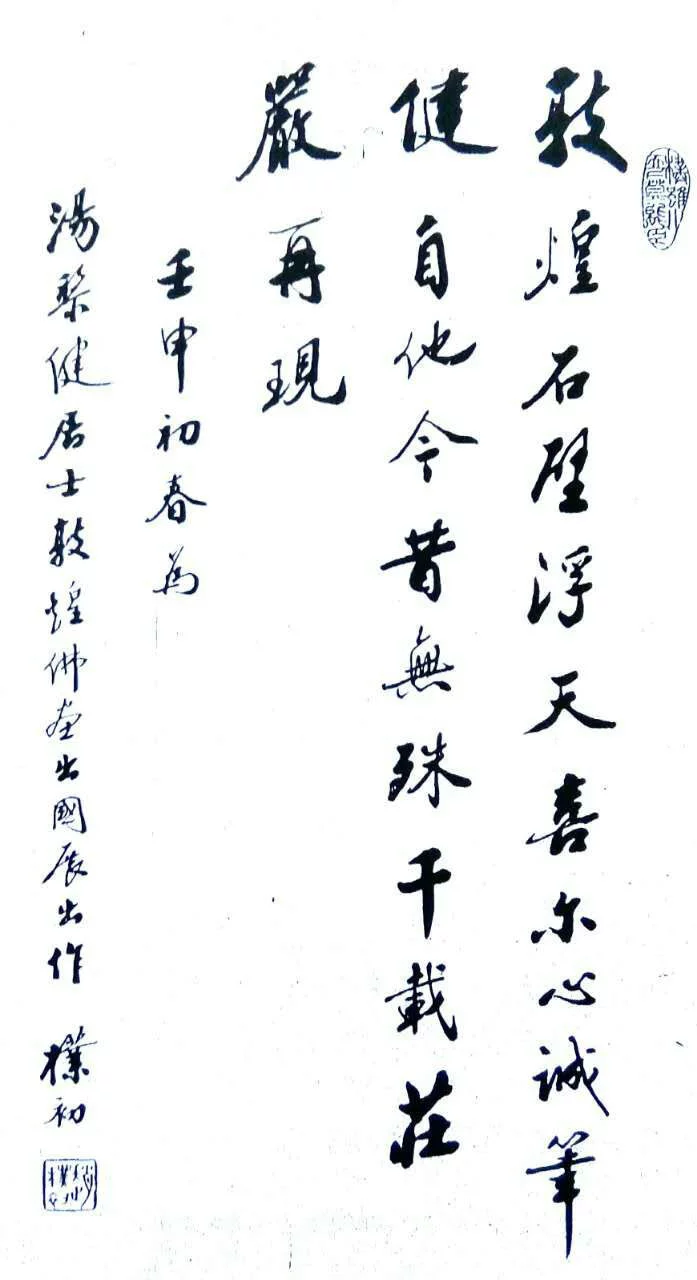 敦煌石壁浮天喜尔心诚筆
健自他今昔無殊千載莊
嚴再現
壬申初春為
湯棃健居士敦煌佛画出國展出作 樸初